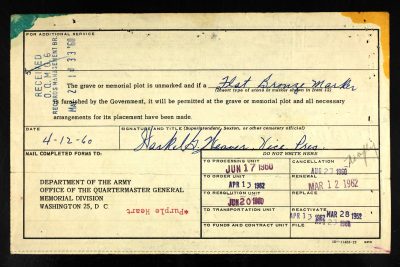 FOR ADDITIONAL SERVICE
RECEIVED
The grave or memorial plot is unmarked and if a Flat Bronze Marker
is furnished by the Government, it will be permitted at the grave or memorial plot and all necessary
arrangements for its placement have been made.
DATE
SIGNATURE AND TITLE (Superintendent, Sexton, or other cemetery official)
4-12-60
Vice Pres
MAIL COMPLETED FORMS TO:
DO NOT WRITE HERE
DEPARTMENT OF THE ARMY
OFFICE OF THE QUARTERMASTER GENERAL
MEMORIAL DIVISION
WASHINGTON 25, D C
*Purple Heart
TO PROCESSING UNIT
JUN 17 1960
CANCELLATION
TO ORDER UNIT
APR 13 1962
RENEWAL
MAR 12 1962
TO RESOLUTION UNIT
JUN 20 1960
REPLACE
TO TRANSPORTATION UNIT
REACTIVATE
APR 13 1962
MAR 28 1962
TO FUNDS AND CONTRACT UNIT